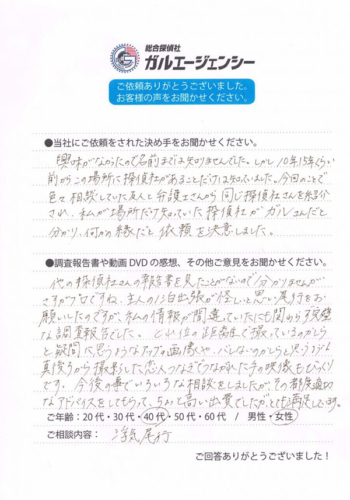 総合探偵社
ガルエージェンシー
ご依頼ありがとうございました。
お客様の声をお聞かせください。
●当社にご依頼をされた決め手をお聞かせください。
興味がなかったので名前までは知りませんでした。しかし10年15年くらい
前からこの場所に探偵社があることだけは知っていました。今回のことで
色々相談していた友人と弁護士さんから同じ探偵社さんを紹介
され、私が場所だけ知っていた探偵社がガルさんだと
分かり、何かの縁だと依頼を決意しました。
●調査報告書や動画DVDの感想、その他ご意見をお聞かせください。
他の探偵社さんの報告書を見たことがないので分かりませんが
さすがプロですね。主人の1泊出張が怪しいと思い尾行をお
願いしたのですが、私の情報が間違っていたにも関わらず完璧
な調査報告でした。どれ位の距離で撮っているのかしら
と疑問に思うようなアップの画像や、バレないのかしらと思うような
真後ろから撮影した恋人つなぎでつながれた手の映像もびっくり
です。今後の事でいろいろな相談をしましたが、その都度適切
なアドバイスをしてもらって、ちょっと高い出費でしたがとても満足しています。
ご年齢：20代・30代・40代・50代・60代 / 男性・女性
ご相談内容：浮気尾行
ご回答ありがとうございました！